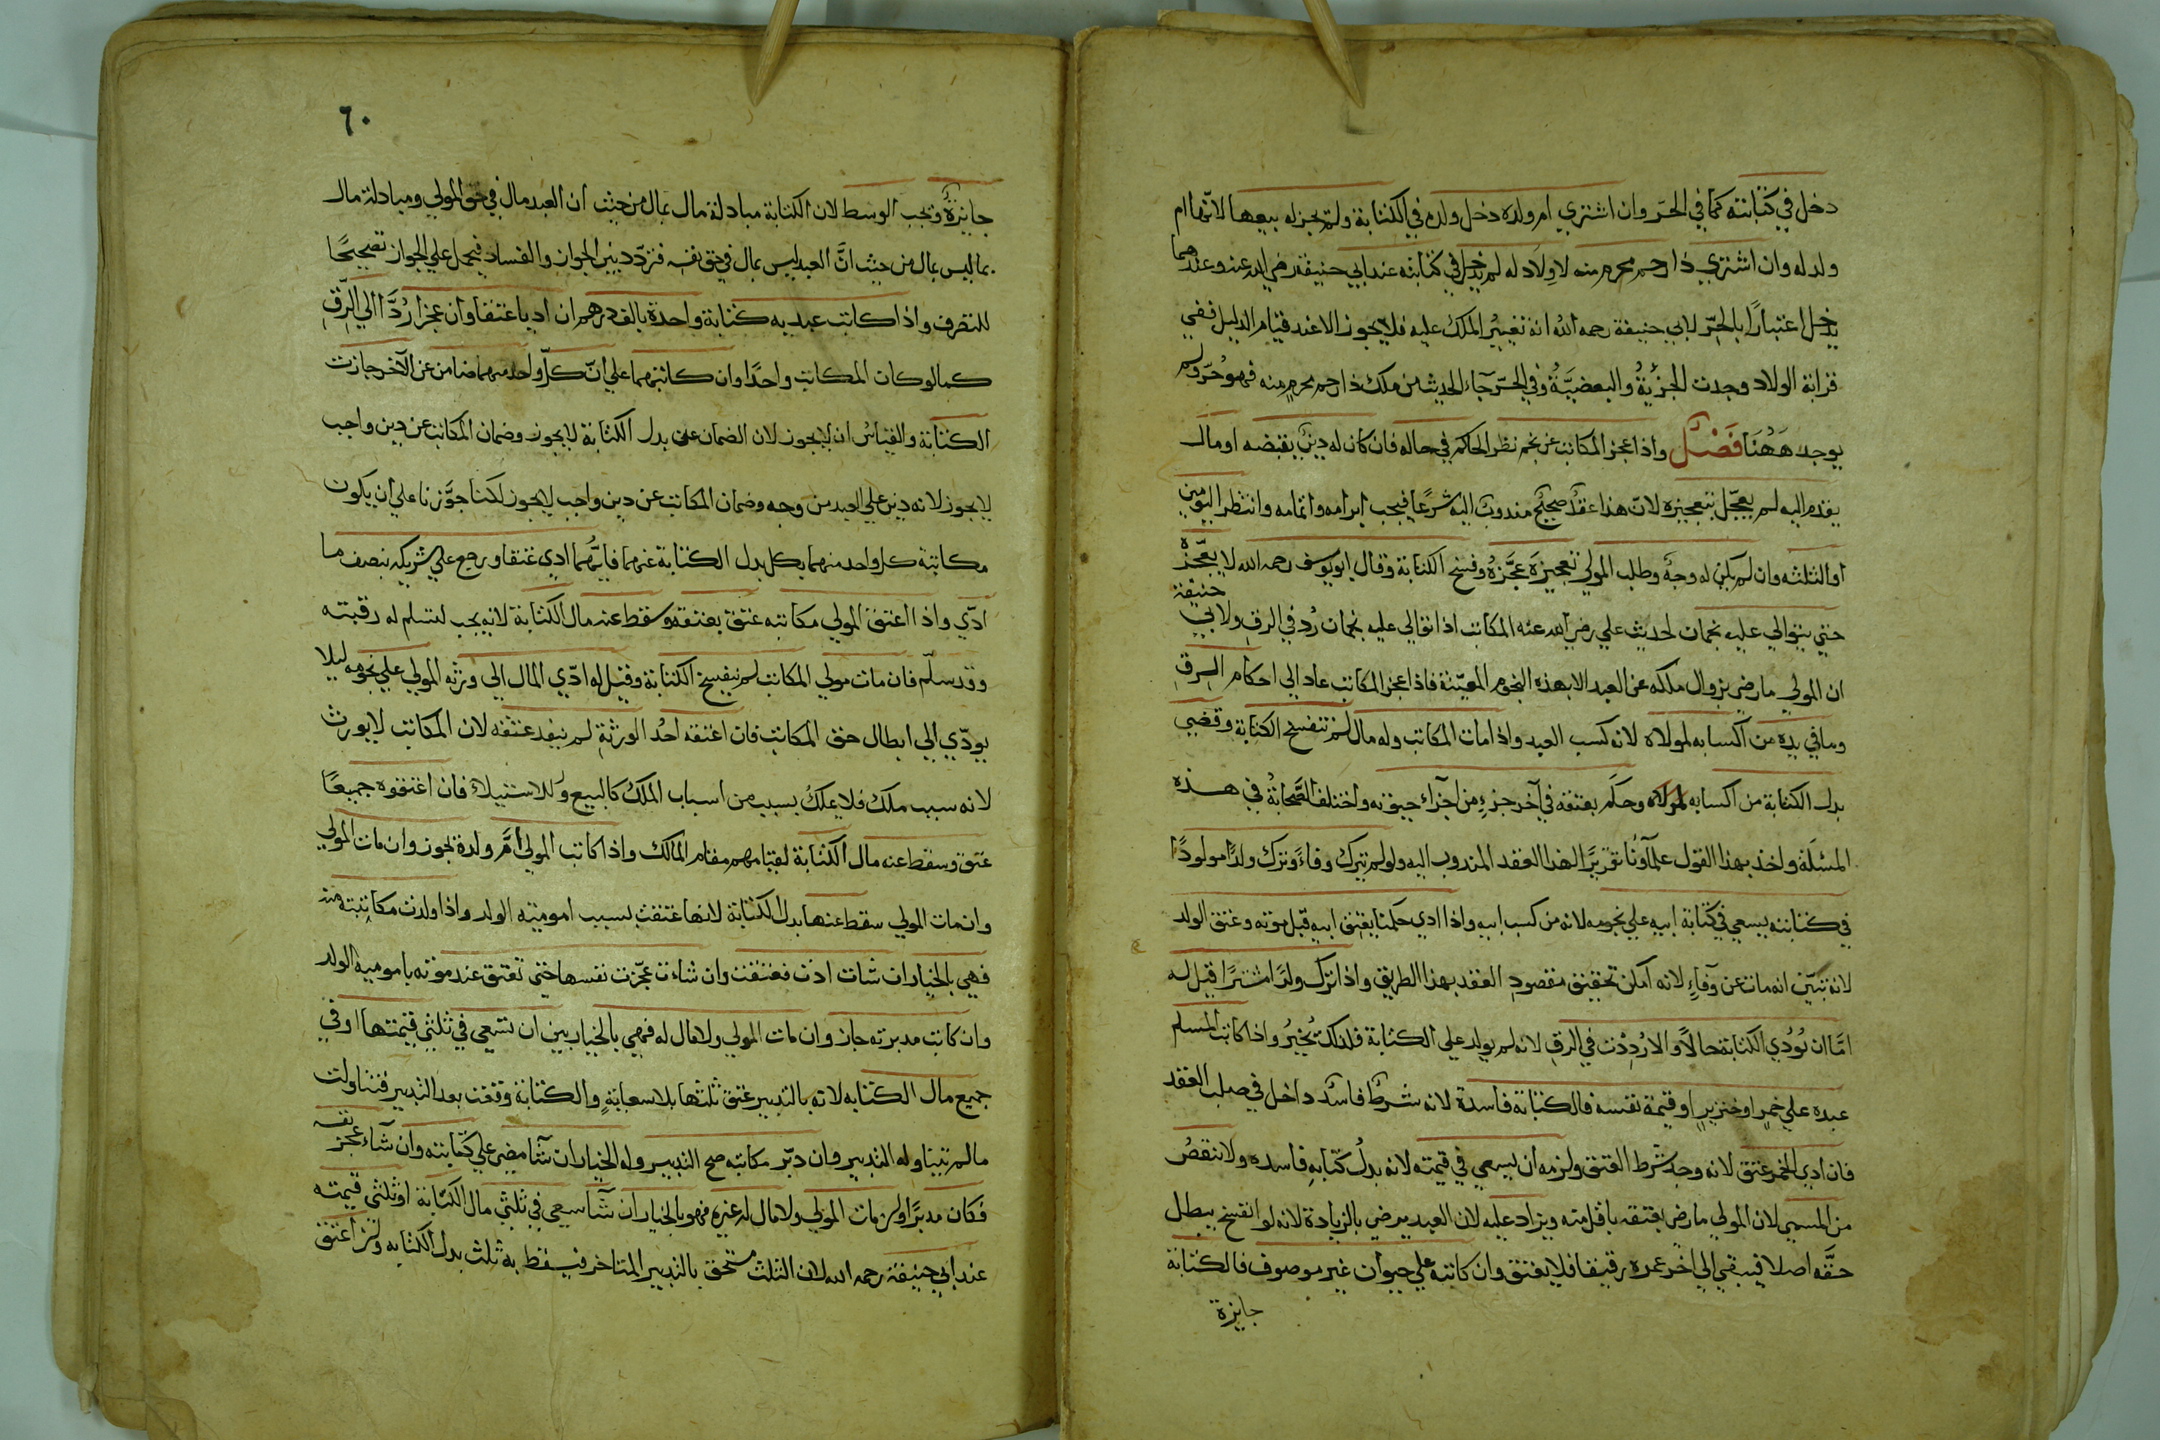 دخل في كتابته كما في الحر وان اشتري ام ولده دخل ولده في الكتابة ولم يجز له بيعها لانها ام
ولد له وان اشتري ذا رحم محرم منه لا ولاد له لم يدخل في كتابته عند ابي حنيفة رضي الله عنه وعندهما
يدخل اعتبارًا بالحر لابي حنيفة رحمه الله انه تغيير الملك عليه فلا يجوز الا عند قيام الدليل ففي
قرابة الولاد وجدت الجزئية والبعضية وفي الحر جآء الحديث من ملك ذا رحم محرم منه فهو حر ولم
يوجد ههنا فصل واذا عجز المكاتب عن نجم نظر الحاكم في حاله فان كان له دين يقبضه او مال
يقدم اليه لم يعجل بتعجيزه لان هذا عقد صحيح مندوب اليه شرعًا فيجب ابرامه واتمامه وانتظر اليومين
او الثلثه وان لم يكن له وجه وطلب المولي تعجيزه عجزه وفسخ الكتابة وقال ابو يوسف رحمه الله لا يعجزه
حتي يتوالي عليه نجمان لحديث علي رضي الله عنه المكاتب اذا توالي عليه نجمان رد في الرق ولابي حنيفة
ان المولي ما رضي بزوال ملكه عن العبد الا بهذه النجوم المعينة فاذا عجز المكاتب عاد الي احكام الرق
وما في يده من اكسابه لمولاه لانه كسب العبد واذا مات المكاتب وله مال لم تنفسخ الكتابة وقضي
بدل الكتابة من اكسابه لمولاه وحكم بعتقه في آخر جزء من اجزاء حيوته واختلف الصحابة في هذه
المسئلة واخذ بهذا القول علمآونا تقريرًا لهذا العقد المندوب اليه ولو لم يترك وفاءً وترك ولدًا مولودًا
في كتابته يسعي في كتابة ابيه علي نجومه لانه من كسب ابيه واذا ادي حكمنا بعتق ابيه قبل موته وعتق الولد
لانه تبين انه مات عن وفآءٍ لانه امكن تحقيق مقصود العقد بهذا الطريق واذا ترك ولدًا مشترًا قيل له
امّا ان تؤدي الكتابة حالاً والا رددت في الرق لانه لم يولد علي الكتابة فلذلك يخير واذا كاتب المسلم
عبده علي خمر او خنزير او قيمة نفسه فالكتابة فاسدة لانه شرط فاسد داخل في صلب العقد
فان ادي الخمر عتق لانه وجد شرط العتق ولزمه ان يسعي في قيمته لانه بدل كتابة فاسده ولا تنقص
من المسمي لان المولي ما رضي بعتقه باقل منه ويزاد عليه لان العبد يرضي بالزيادة لانه لو انفسخ يبطل
حقه اصلا فيبقي الي اخر عمره رقيقا فلا يعتق وان كاتبه علي حيوان غير موصوف فالكتابة
جايزة
٦٠
جايزة وتجب الوسط لان الكتابة مبادلة مال بمال من حيث ان العبد مال في حق المولي ومبادلة مال
بما ليس بمال من حيث انّ العبد ليس بمال في حق نفسه فتردد بين الجواز والفساد فيحمل علي الجواز تصحيحًا
للتصرف واذا كاتب عبديه كتابة واحدة بالف درهم ان اديا عتقا وان عجزا رُدَّا الي الرق
كما لو كان المكاتب واحدًا وان كاتبهما علي انّ كلّ واحد منهما ضامن عن الآخر جازت
الكتابة والقياس ان لا يجوز لان الضمان علي بدل الكتابة لا يجوز وضمان المكاتب عن دين واجب
لا يجوز لانه دين علي العبد من وجه وضمان المكاتب عن دين واجب لا يجوز لكنا جوّزنا علي ان يكون
مكاتبة كل واحد منهما بكل بدل الكتابة عنهما فايّهما ادي عتقا ورجع علي شريكه بنصف ما
ادّي واذا اعتق المولي مكاتبه عتق بعتقه وسقط عنه مال الكتابة لانه يجب لتسلم له رقبته
وقد سلّم فان مات مولي المكاتب لم تنفسخ الكتابة وقيل له ادّي المال الي ورثة المولي علي نجومه ليلا
يودّي الي ابطال حق المكاتب فان اعتقه احدُ الورثة لم ينفد عتقه لان المكاتب لا يورث
لانه سبب ملك فلا يملك بسبب من اسباب الملك كالبيع والاستيلاء فان اعتقوه جميعًا
عتق وسقط عنه مال الكتابة لقيامهم مقام المالك واذا كاتب المولي امَّ ولدة يجوز وان مات المولي
وان مات المولي سقط عنها بدل الكتابة لانها عتقت بسبب امومية الولد واذا ولدت مكاتبته منه
فهي بالخيار ان شات ادت فعتقت وان شاءت عجّزت نفسها حتي تعتق عند موته بامومية الولد
وان كاتب مدبرته جاز وان مات المولي ولا مال له فهي بالخيار بين ان تسعي في ثلثي قيمتها او في
جميع مال الكتابه لانه بالتدبير عتق ثلثها بلا سعاية والكتابة وقعت بعد التدبير فتناولت
ما لم تتناوله التدبير وان دبّر مكاتبه صح التدبير وله الخيار ان شآ مضي علي كتابته وان شآء عجز نفسه
فكان مدبرًا وان مات المولي ولا مال له غيره فهو بالخيار ان شآ سعي في ثلثي مال الكتابة او ثلثي قيمته
عند ابي حنيفة رحمه الله لان الثلث مستحق بالتدبير المتاخر فيسقط به ثلث بدل الكتابه وان اعتق